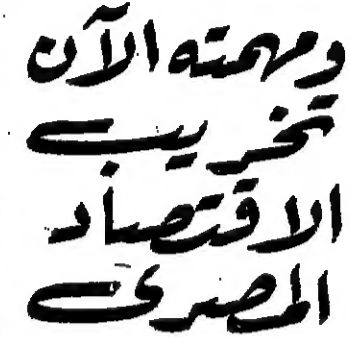 ومهمته الآن
تخريب
الاقتصاد
المصرى